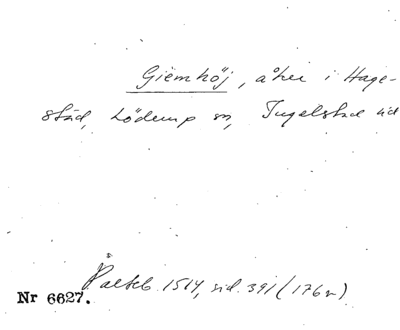 Giemhöj, åker i Hage-
stad, Löderup sn, Ingelstad hd
Palteb. 1514, sid. 391 (176v)
Nr 6627.